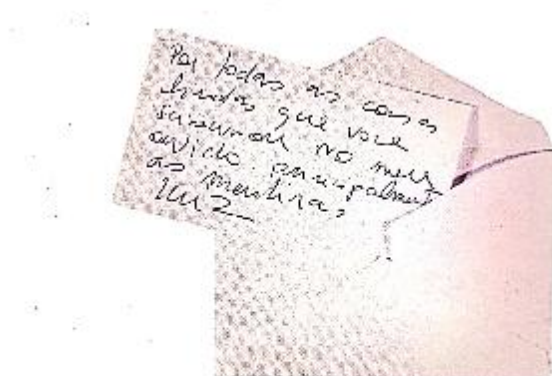 Por todas as coisas
lindas que você
sussurrou no meu
ouvido principalmente
as mentiras